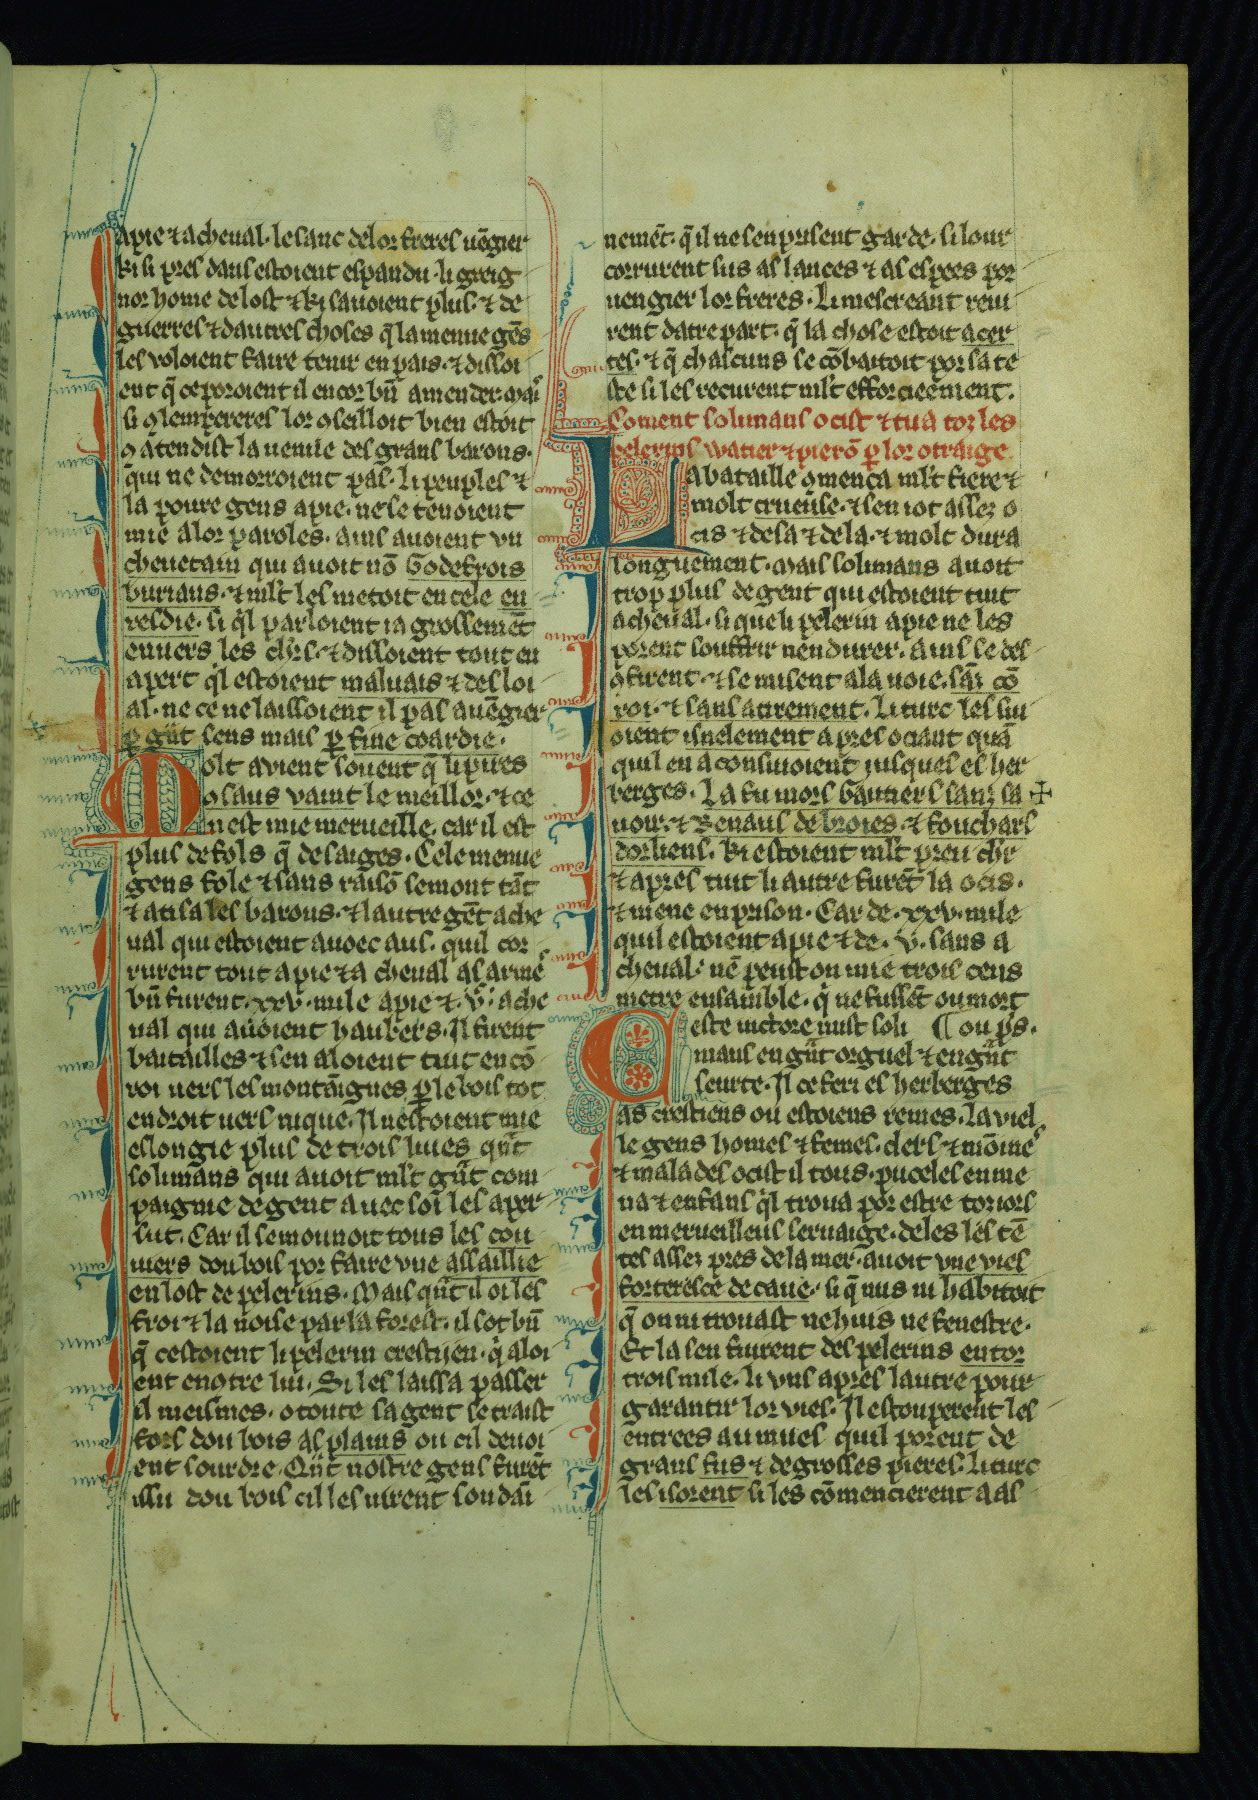 apie ⁊ a cheual. le sanc de lor freres uēgier
ki si pres daus estoient espandu. li greig
nor home de lost ⁊ ki sauoient plus. ⁊ de
guerres ⁊ dautres choses q̄ la menue gēs
les voloient faire tenir en pais. ⁊ dissoi
ent q̄ ce poroient il encor bn̄ amender. mais
si ꝯ lempereres lor ꝯseilloit bien estoit
ꝯ atendist la uenue des grans barons.
qui ne demorroient pas. li peuples ⁊
la poure gens apie. ne se tenoient
mie a lor paroles. ains auoient vn
cheuetain qui auoit nō Godefrois
burians. ⁊ ml't les metoit en cele en
resdie. si ql parloient ia grossemēt
enuers les chrs. ⁊ dissoient tout en
apert ql estoient maluais ⁊ desloi
al. ne ce ne laissoient il pas a uēgier
p gnt sens mais p fine coardie.
Molt auient souent q̄ li pires
ꝯsaus vaint le meillor. ⁊ ce
nest mie merueille. car il est
plus de fols q̄ de saiges. Cele menue
gens fole ⁊ sans raisō semont tāt
⁊ atisa les barons. ⁊ lautre gēt a che
ual qui estoient auoec aus. quil cor
rurent tout a pie ⁊ a cheual as armes
bn̄ furent. xxv. mile apie ⁊ .v. a che
ual qui auoient haubers. Il firent
batailles ⁊ sen aloient tuit en cō
roi uers les montaignes p le bois tot
endroit uers nique. Il nestoient mie
eslongie plus de trois liues qnt
solimans qui auoit ml't gnt com
paignie de gent auec soi les aper
sut. Car il semounoit tous les cou
uiers dou bois por faire vne assaillie
en lost de pelerins. Mais qnt il oi les
froi ⁊ la noise par la forest. il sot bn̄
q̄ cestoient li pelerin crestijen. q aloi
ent enꝯtre lui. Si les laissa passer
il meismes. o toute sa gent se traist
fors dou bois as plains ou cil deuoi
ent sourdre. Qnt nostre gens furēt
issu dou bois cil les uirent soudai
nemēt. q il ne sen prisent garde. si lour
corrurent sus as lances ⁊ as espees por
uengier lor freres. Li mescreant reui
rent datre part. q̄ la chose estoit a cer
tes. ⁊ q̄ chascuns se cōbatoit por sa te
ste si les recurent ml't efforcieement.
Coment solimans ocist ⁊ tua tor les
pelerins watier ⁊ pierō p lor otraige.
La bataille ꝯmenca ml't fiere ⁊
molt crueuse. ⁊ sen iot assez o
cis ⁊ de sa ⁊ de la. ⁊ molt dura
longuement. Mais solimans auoit
trop plus de gent qui estoient tuit
a cheual. si que li pelerin a pie ne les
porent souffrir nendurer. Ains se des
ꝯfirent. ⁊ se misent a la uoie. sāz cō
roi. ⁊ sans atirement. Li turc les siu
oient isnelement apres ociant quā
quil en aconsiuoient iusques es her
berges. La fu mors bautiers sanz sa
uoir. ⁊ Renaus de broies. ⁊ fouchars
dorliens. ki estoient ml't preu chr
⁊ apres tuit li autre furēt la ocis.
⁊ mene en prison. Car de .xxv. mile
quil estoient apie ⁊ de .v. sans a
cheual. nē peust on mie trois cens
metre ensamble. q ne fussēt ou mort
Ceste uictore mist soli ¶ ou p̄s.
mans en gnt orguel ⁊ en gnt
seurte. Il ce feri es herberges
as crestiens ou estoiens remes. la viel
le gens homes ⁊ femes. clers ⁊ mōines
⁊ malades ocist il tous. puceles enme
na ⁊ enfans ql troua por estre toriors
en merueilleus seruaige. deles les tē
tes assez pres de la mer. auoit vne vies
forteresce de caue. si q̄ nus ni habitoit
q̄ on ni trouast ne huis ne fenestre.
Et la sen fuirent des pelerins entor
trois mile. li vns apres lautre pour
garantir lor vies. Il estouperent les
entrees au mues quil porent de
grans fus ⁊ de grosses pieres. li turc
les isorent si les cōmencierent a as